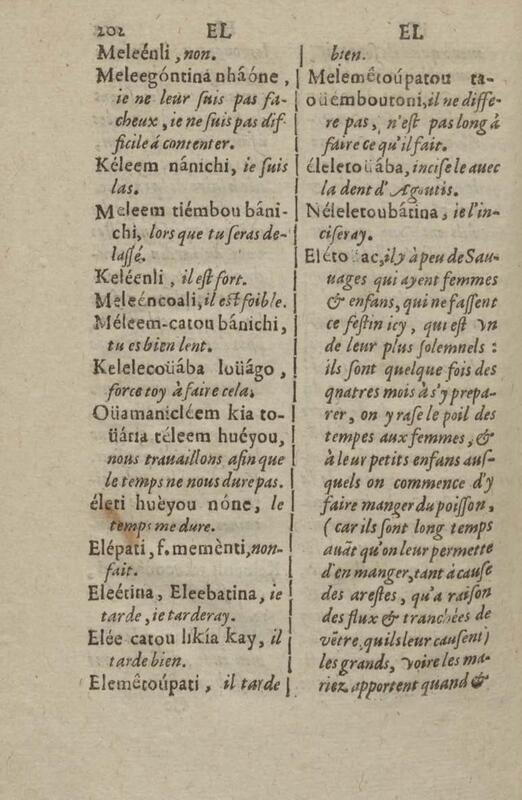 202 EL EL
Meleénli, non.
Meleegóntina nháóne,
ie ne leur suis pas fa-
cheux, ie ne suis pas dif
ficile á contenter.
Kéleem nánichi, ie suis
las.
Meleem tiémbou báni-
chi, lors que tu seras de-
lassé.
Keléenli, il est fort.
Meleéncoali, il est foible.
Méleem-catou bánichi,
tu es bien lent.
Kelelecoüába loüágo,
force toy à faire cela.
Oüamanicléem kia to-
üária téleem huéyou,
nous trauaillons afin que
le temps ne nous dure pas.
életi huèyou nóne, le
temps me dure.
Elépati, f. memènti, non-
fait.
Eleétina, Eleebatina, ie
tarde, ie tarderay.
Elée catou likía kay, il
tarde bien.
Elemêtoúpati, il tarde
bien.
Melemêtoúpatou ta-
oüémboutoni, il ne diffe-
re pas, n'est pas long à
faire ce qu'il fait.
éleletoüába, incise le auec
la dent d'Agoutis.
Néleletoubátina, ie l'in-
ciseray.
Eléto ac, il y à peu de Sau-
uages qui ayent femmes
& enfans, qui ne fassent
ce festin icy, qui est vn
de leur plus solemnels :
ils sont quelque fois des
qnatres mois à s'y prepa-
rer, on y rase le poil des
tempes aux femmes, &
à leur petits enfans aus-
quels on commence d'y
faire manger du poisson,
(car ils sont long temps
auāt qu'on leur permette
d'en manger, tant à cause
des arestes, qu'a raison
des flux & tranchées de
vētre, quils leur causent)
les grands, voire les ma-
riez apportent quand &